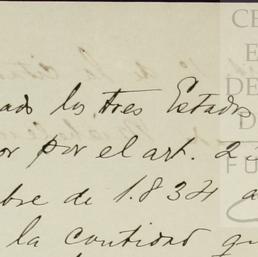 ado los tres Estados
or por el art. 23
bre de 1.834 a
la cantidad qu
CE
E
DE
D
FU